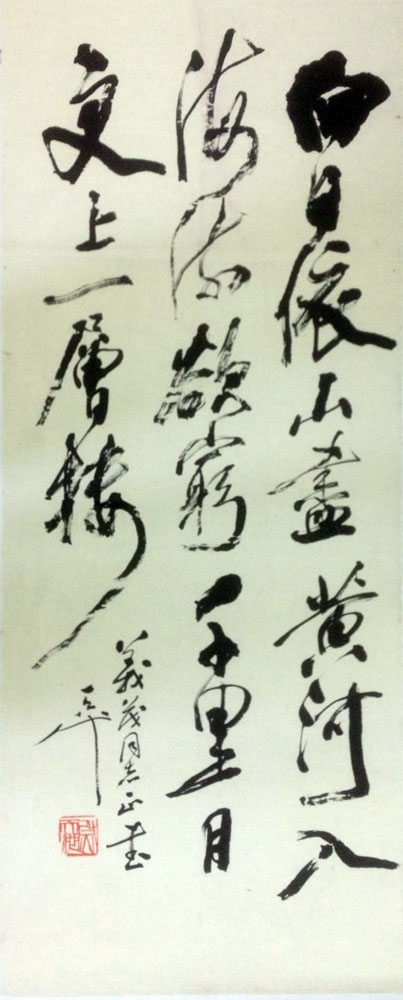 白日依山盡黄河入
海流欲窮千里目
更上一層樓
義茂同志正